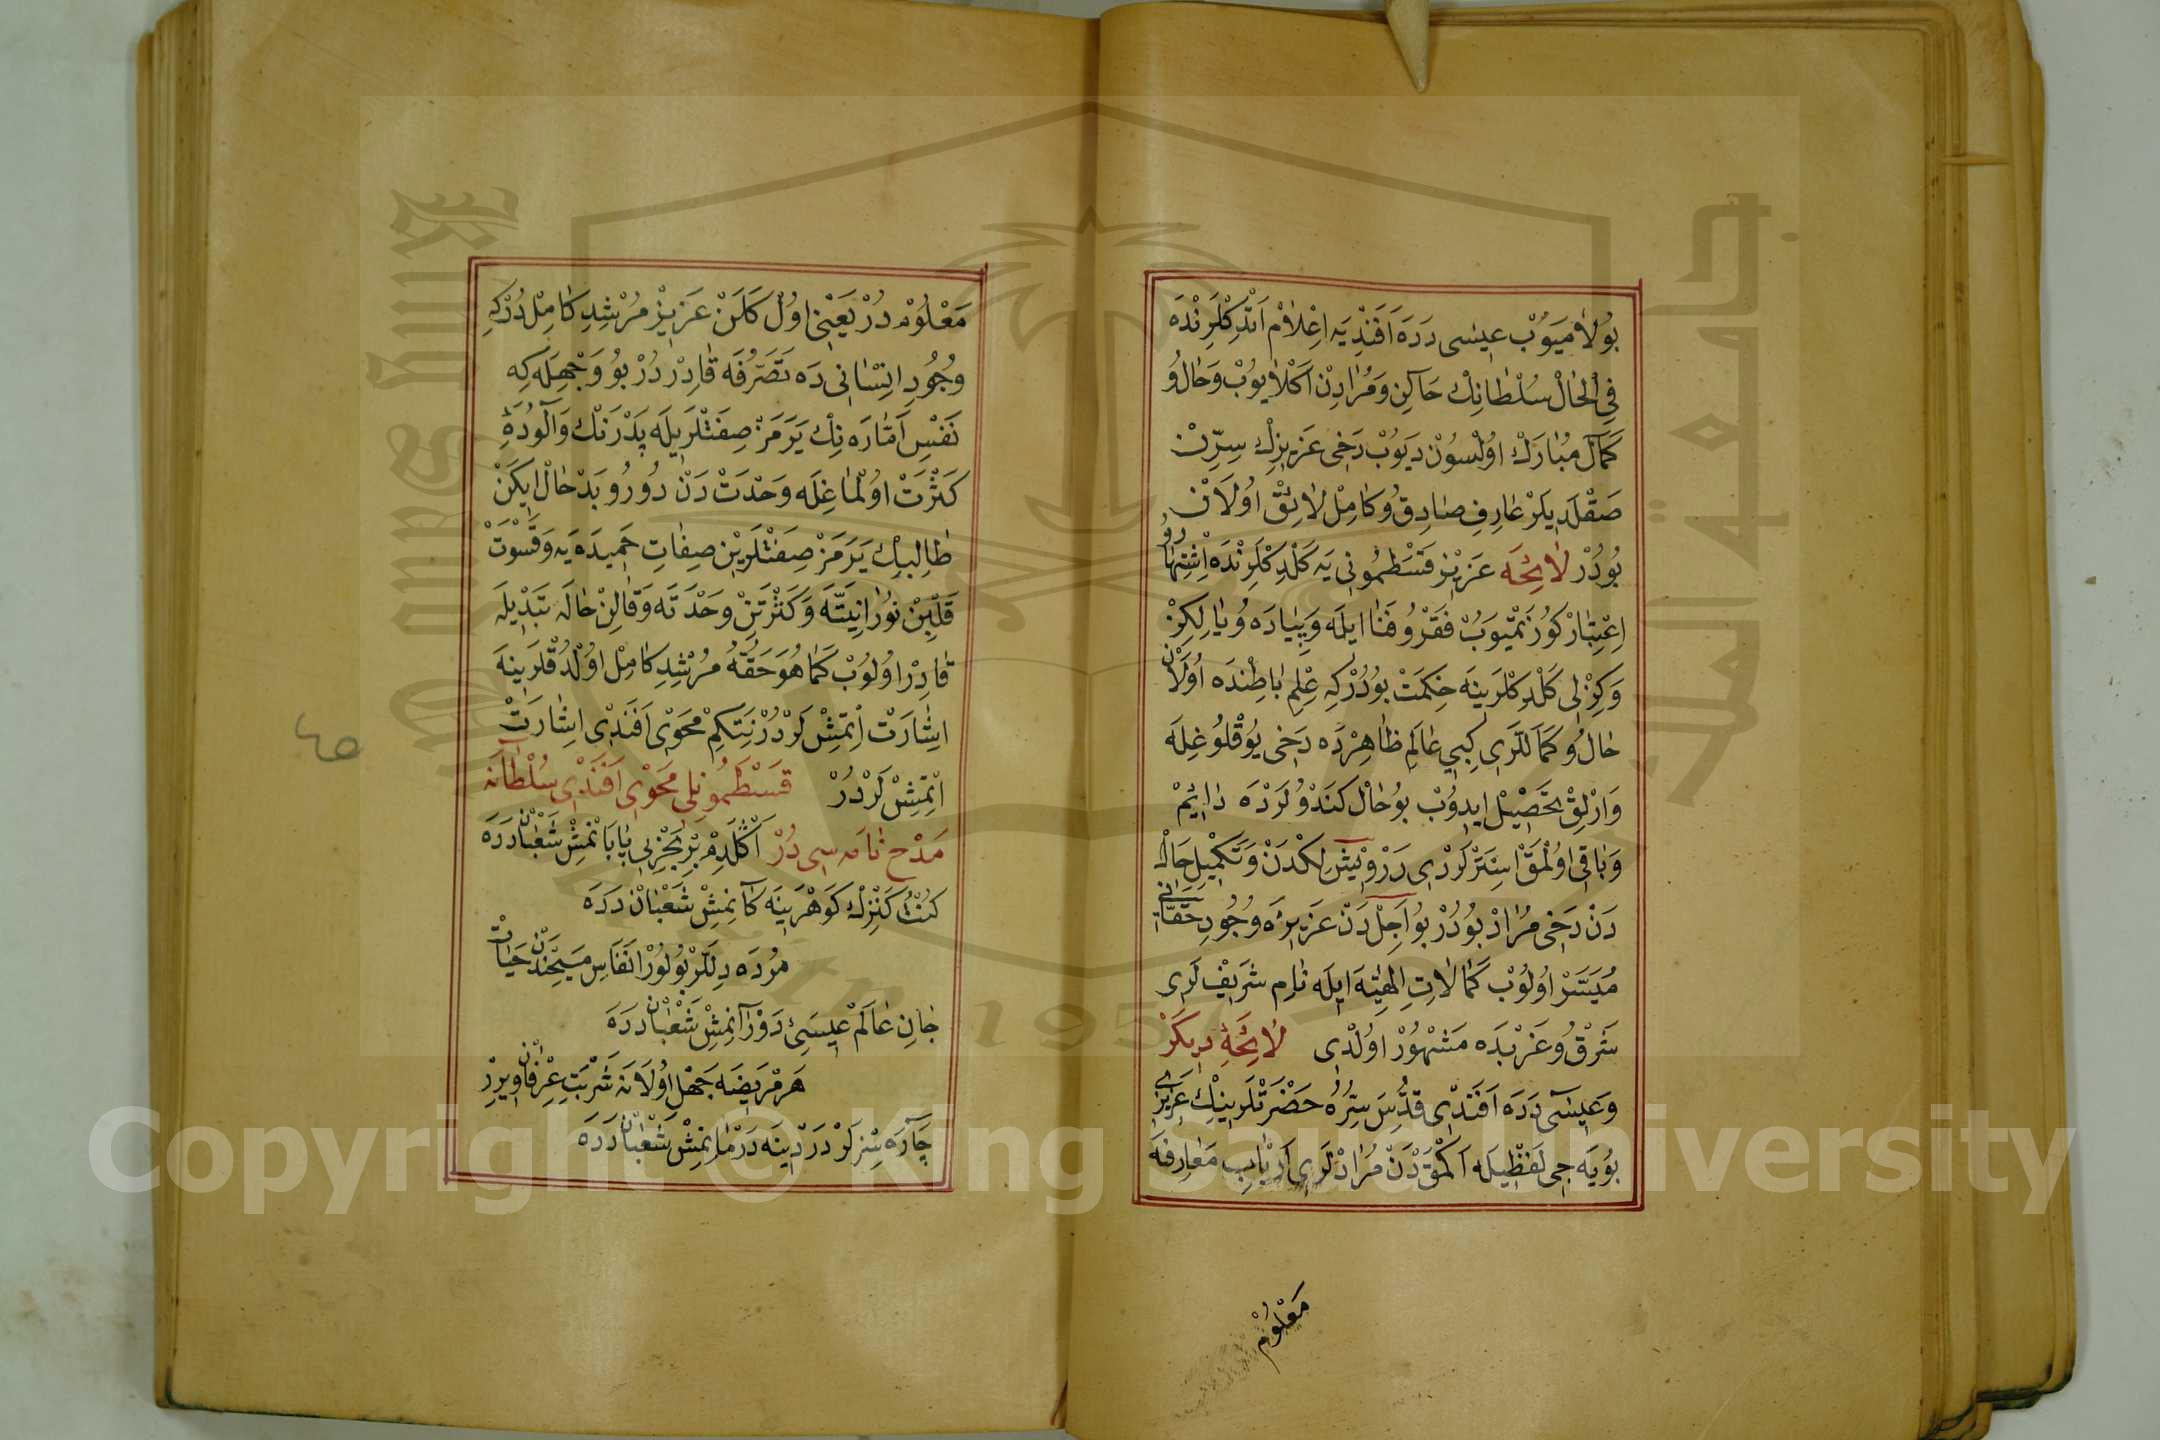 بُولَامَيُوبْ عِيسَى دَدَه اَفَنْدِيَه اِعْلَامْ اَتْدِكْلَرِنْدَه
فِي الْحَالْ سُلْطَانِكْ حَالِنْ وَمُرَادِنْ اَكْلَايُوبْ وَحَالُ وُ
كَمَالَ مُبَارَكْ اُولْسُونْ دَيُوبْ دَخِى عَزِيزِكْ سِرِّنْ
صَقْلَدِيلَرْ عَارِفِ صَادِقُ وُكَامِلْ لَائِقْ اُولَانْ
بُودُرْ لَايِحَه عَزِيزْ قَسْطَمُونِى يَه كَلْدِكْلَرِنْدَه اِشْتِهَارُ وُ
اِعْتِبَارْ كُورُنَمَّيُوبْ فَقْرُ وُفَنَا ايلَه وَپِيَادَه وُيَالِكِزْ
وَكِزْلِى كَلْدِكْلَرِينَه حِكمَتْ بُودُرْ كِه عِلْمِ بَاطِنْدَه اُولَانْ
حَالُ وُكَمَاللَّرِى كِبِي عَالَمِ ظَاهِرْدَه دَخِى يُوقْلُوغِلَه
وَارْلِقْ تَحْصِيلْ ايدُوبْ بُوحَالْ كَنْدُولَرْدَه دَائِمْ
وَبَاقِى اُولْمَقْ اِسْتَرْلَرْدِى دَرْوِيشْلِكْدَنْ وَتَكْمِيلِ حَالْ
دَنْ دَخِى مُرَادْ بُودُرْ بُو اَجِلْدَنْ عَزِيزَه وُجُودِ حَقَّانِى
مُيَسَّرْ اُولُوبْ كَمَالَاتِ اِلٰهِيَّه ايلَه نَامِ شَرِيفْلَرِى
شَرْقُ وُغَرْبَدَه مَشْهُورْ اُولْدِى لَايِحَۀِ دِيكَرْ
وَعِيسَى دَدَه اَفَنْدِى قُدِّسَ سِرُّهُ حَضْرَتْلَرِينِكْ عَزِيزِى
بُويَه جِى لَفْظِيلَه اَكْمَقْدَنْ مُرَادْلَرِى اَرْبَابِ مَعَارِفَه
مَعْلُومْ
مَعْلُومْ دُرْ يَعْنِى اوُلْ كَلَنْ عَزِيزْ مُرْشِدِ كَامِلْ دُرْكِه
وُجُودِ اِنْسَانِى دَه تَصَرُّفَه قَادِرْ دُرْ بُو وَجْهِلَه كِه
نَفْسِ اَمَّارَه نِكْ يَرَمَزْ صِفَتْلَرِيلَه پَدْرَنْكْ وَآلُودَۀِ
كَثْرَتْ اوُلْمَاغِلَه وَحْدَتْ دَنْ دُورُ وبَدْحَالْ ايكَنْ
طَالِبِكْ يَرَمَزْ صِفَتْلَرِيْنْ صِفَاتِ حَمِيدَه يَه وَقَسْوَتْ
قَلْبِنْ نُورَانِيَّتَه وَكَثْرَتِنْ وَحْدَتَه وَقَالِنْ حَالَه تَبْدِيلَه
قَادِرْ اوُلُوبْ كَمَا هُوَ حَقُّهُ مُرْشِدِ كَامِلْ اوُلْدُقْلَرِينَه
اِشَارَتْ اِتمِشْلَرْدُرْ نِتَكِمْ مَحْوِى اَفَنْدِى اِشَارَتْ
اتمِشْلَرْدُرْ قَسْطَمُونِلِى مَحْوِى اَفَنْدِى سُلْطَانَه
مَدْحِ نَامَه سِى دُرْ اَكْلَدِمْ بَرِبَحْرِبِى پَايَانِمِشْ شَعْبَانْ دَدَه
كُنْتُ كَنْزِكْ كَوْهَرِينَه كَانِمِشْ شَعْبَانْ دَدَه
مُردَه دِللَرْ بُولُورْ اَنْفَاسِ مَسِيحِنْدَنْ حَيَاتْ
جَانِ عَالَمْ عِيسَىِٔ دَوْرَانِمِشْ شَعْبَانْ دَدَه
هَرْ مَرِيضَه جَهْلِ اوُلَانَه شَرْبَتِ عِرْفَانْ وِيرِرْ
چَارَه سِزْلَرْ دَرْدِينَه دَرْمَانِمِشْ شَعْبَانْ دَدَه
٤٥
Copyright © King Saud University
King Saud University
جامعة الملك سعود
1957